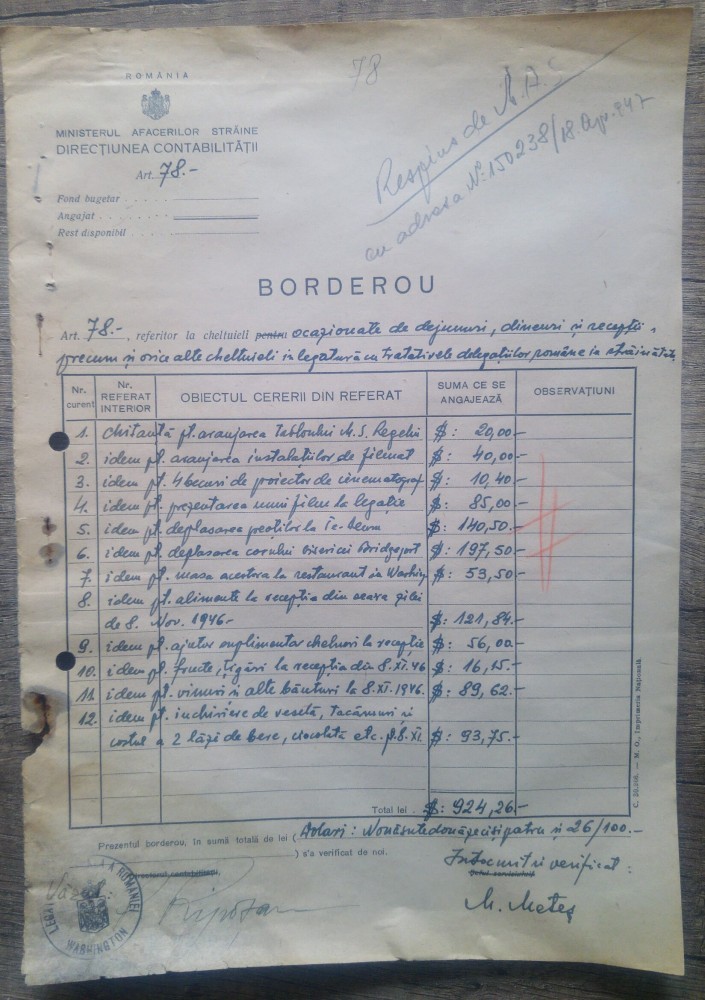 78
ROMÂNIA
Respins de M.A.S.
cu adresa Nº 150238/18.Apr.947
MINISTERUL AFACERILOR STRĂINE
DIRECȚIUNEA CONTABILITĂȚII
Art. 78.-
Fond bugetar
Angajat
Rest disponibil
BORDEROU
Art. 78.-, referitor la cheltuieli pentru ocazionate de dejunuri, dineuri și recepții,
precum și orice alte cheltuieli în legatură cu tratativele delegațiilor române în străinătate
Nr. curent
Nr. REFERAT INTERIOR
OBIECTUL CERERII DIN REFERAT
SUMA CE SE ANGAJEAZĂ
OBSERVAȚIUNI
1. chitanță pt. aranjarea tabloului M.S. Regelui $: 20,00.-
2. idem pt. aranjarea instalațiilor de filmat $: 40,00.-
3. idem pt. 4 becuri de proiector de cinematograf $: 10,40-
4. idem pt. prezentarea unui film la legație $: 85,00.-
5. idem pt. deplasarea preoților la Te-Deum $: 140,50.-
6. idem pt. deplasarea corului bisericii Bridgeport $: 197,50-
7. idem pt. masa acestora la restaurant in Washing $: 53,50-
8. idem pt. alimente la recepția din seara zilei
de 8. Nov. 1946.- $: 121,84.-
9. idem pt. ajutor suplimentar chelneri la recepție $: 56,00.-
10. idem pt. fructe, țigări la recepția din 8.XI.46 $: 16,15.-
11. idem pt. vinuri și alte băuturi la 8.XI.1946. $: 89,62.-
12. idem pt. inchiriere de veselă, tacâmuri și
costul a 2 lăzi de bere, ciocolată etc. p. 8.XI. $: 93,75.-
Total lei . $: 924,26.-
C. 20.300. — M. O., Imprimeria Națională.
Prezentul borderou, în sumă totală de lei ( Dolari: Nouăsutedouăzecișipatru și 26/100.-
) s'a verificat de noi.
Întocmit și verificat:
Văzut:
M. Meteș
LEGAȚIA ROMÂNIEI
WASHINGTON